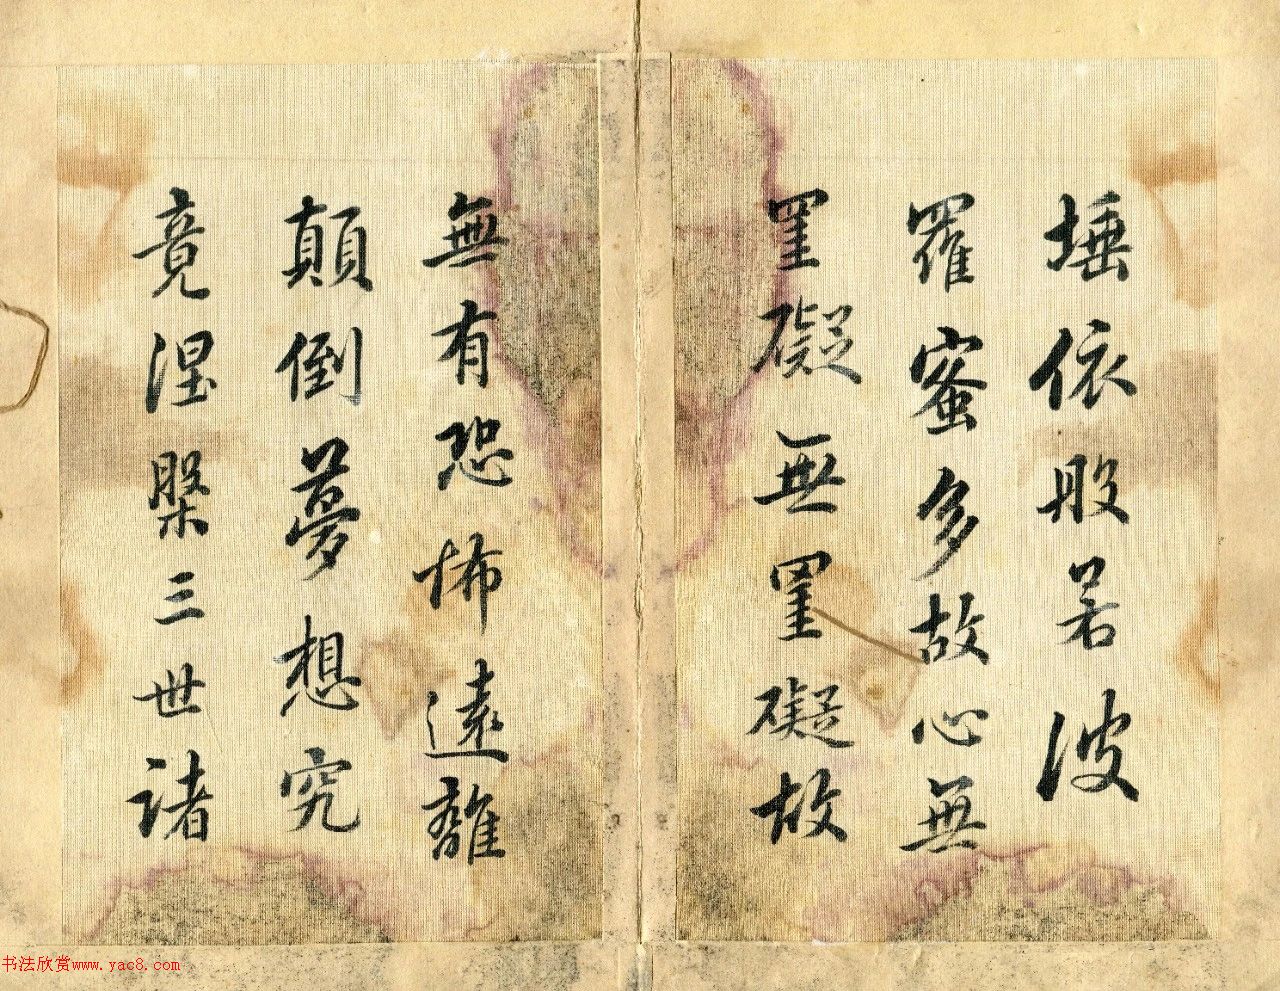 埵依般若波
羅蜜多故心無
罣礙無罣礙故
無有恐怖遠離
顛倒夢想究
竟涅槃三世諸
书法欣赏www.yac8.com